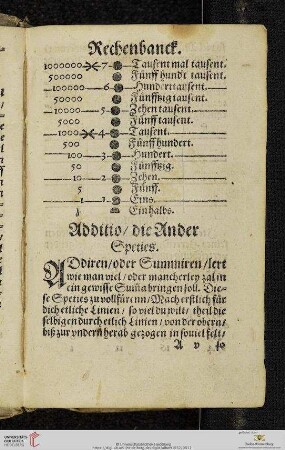 Rechenbanck.
1000000 7 Tausent mal tausent.
500000 Fünff hundt tausent.
100000 6 Hundert tausent.
50000 Fünfftzig tausent.
10000 5 Zehen tausent.
5000 Fünff tausent.
1000 4 Tausent.
500 Fünff hundert.
100 3 Hundert.
50 Fünfftzig.
10 2 Zehen.
5 Fünff.
1 1 Eins.
Einhalbs.
Additio / die Ander
Species.
ADdiren / oder Summiren / lert
wie man viel / oder mancherley zal in
ein gewisse Suma bringen soll. Die-
se Species zu vollfüren / Mach erstlich für
dich etliche Linien / so viel du wilt / theil die
selbigen durch etlich Linien / von der obern /
biß zur vndern herab gezogen in souiel felt /
A v so